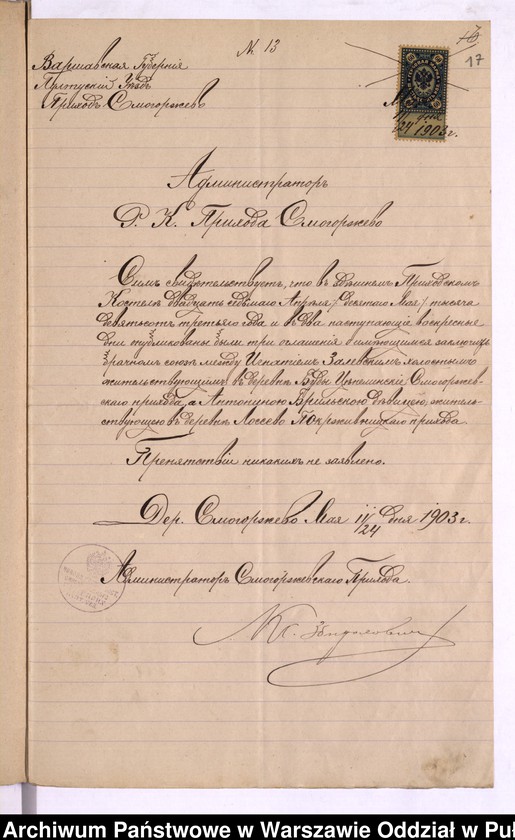 № 13
17
Варшавская Губернія
Пултускій Уѣздъ
Приходъ Смогоржевъ
11 дня
24 1903 г.
Администраторъ
Р. К. Прихода Смогоржево
Симъ свидѣтельствуетъ, что въ здѣшнемъ Приходскомъ
Костелѣ двадцать седьмаго Апрѣля / десятаго Мая / тысяча
девятьсотъ третьяго года и въ два наступающіе воскресные
дни опубликованы были три оглашенія о имѣющемся заключ.
брачномъ союзѣ между Игнатіемъ Залевскимъ холостымъ
жительствующимъ въ деревнѣ Буды Смогоржев-
скаго прихода, а Антониною Брильскою дѣвицею, житель-
ствующею въ деревнѣ Лосево Покрживницкаго прихода.
Препятствій никакихъ не заявлено.
Дер. Смогоржево Мая 11/24 дня 1903 г.
Администраторъ Смогоржевскаго Прихода.
Кс.
Archiwum Państwowe w Warszawie Oddział w Puł